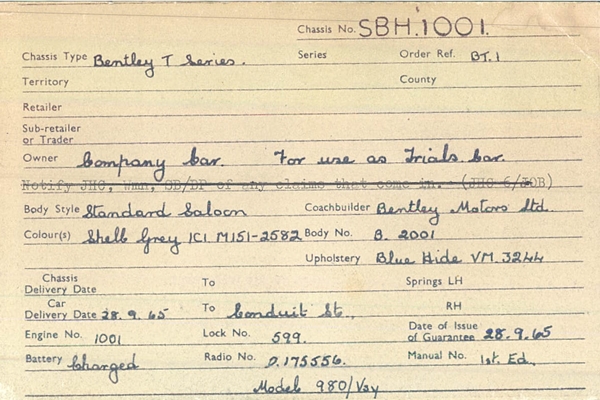 Chassis No. SBH.1001.
Chassis Type Bentley T Series. Series Order Ref. BT.1
Territory County
Retailer
Sub-retailer
or Trader
Owner Company Car. For use as Trials Car.
Notify JHC, WmM, SB/DP of any claims that come in. (JHC 6/IOB)
Body Style Standard Saloon Coachbuilder Bentley Motors Ltd.
Colour(s) Shell Grey ICI M151-2582 Body No. B. 2001
Upholstery Blue Hide VM. 3244
Chassis
Delivery Date To Springs LH
Car
Delivery Date 28.9.65 To Conduit St. RH
Engine No. 1001 Lock No. 599. Date of Issue
of Guarantee 28.9.65
Battery Charged Radio No. D.175556. Manual No. 1st. Ed.
Model 980/Vsy